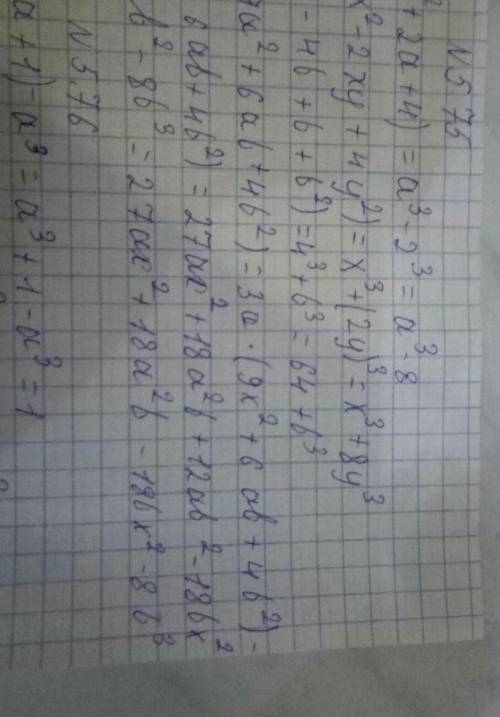 N 5.75
+ 2a + 4) = a³ - 2³ = a³ - 8
x² - 2xy + 4y²) = x³ + (2y)³ = x³ + 8y³
- 4b + b + b²) = 4³ + b³ = 64 + b³
a² + 6ab + 4b²) = 3a · (9x² + 6ab + 4b²) -
6ab + 4b²) = 27ax² + 18a²b + 12ab² - 18bx²
b² - 8b³ = 27ax² + 18a²b - 18bx² - 8b³
N 5.76
a + 1) - a³ = a³ + 1 - a³ = 1